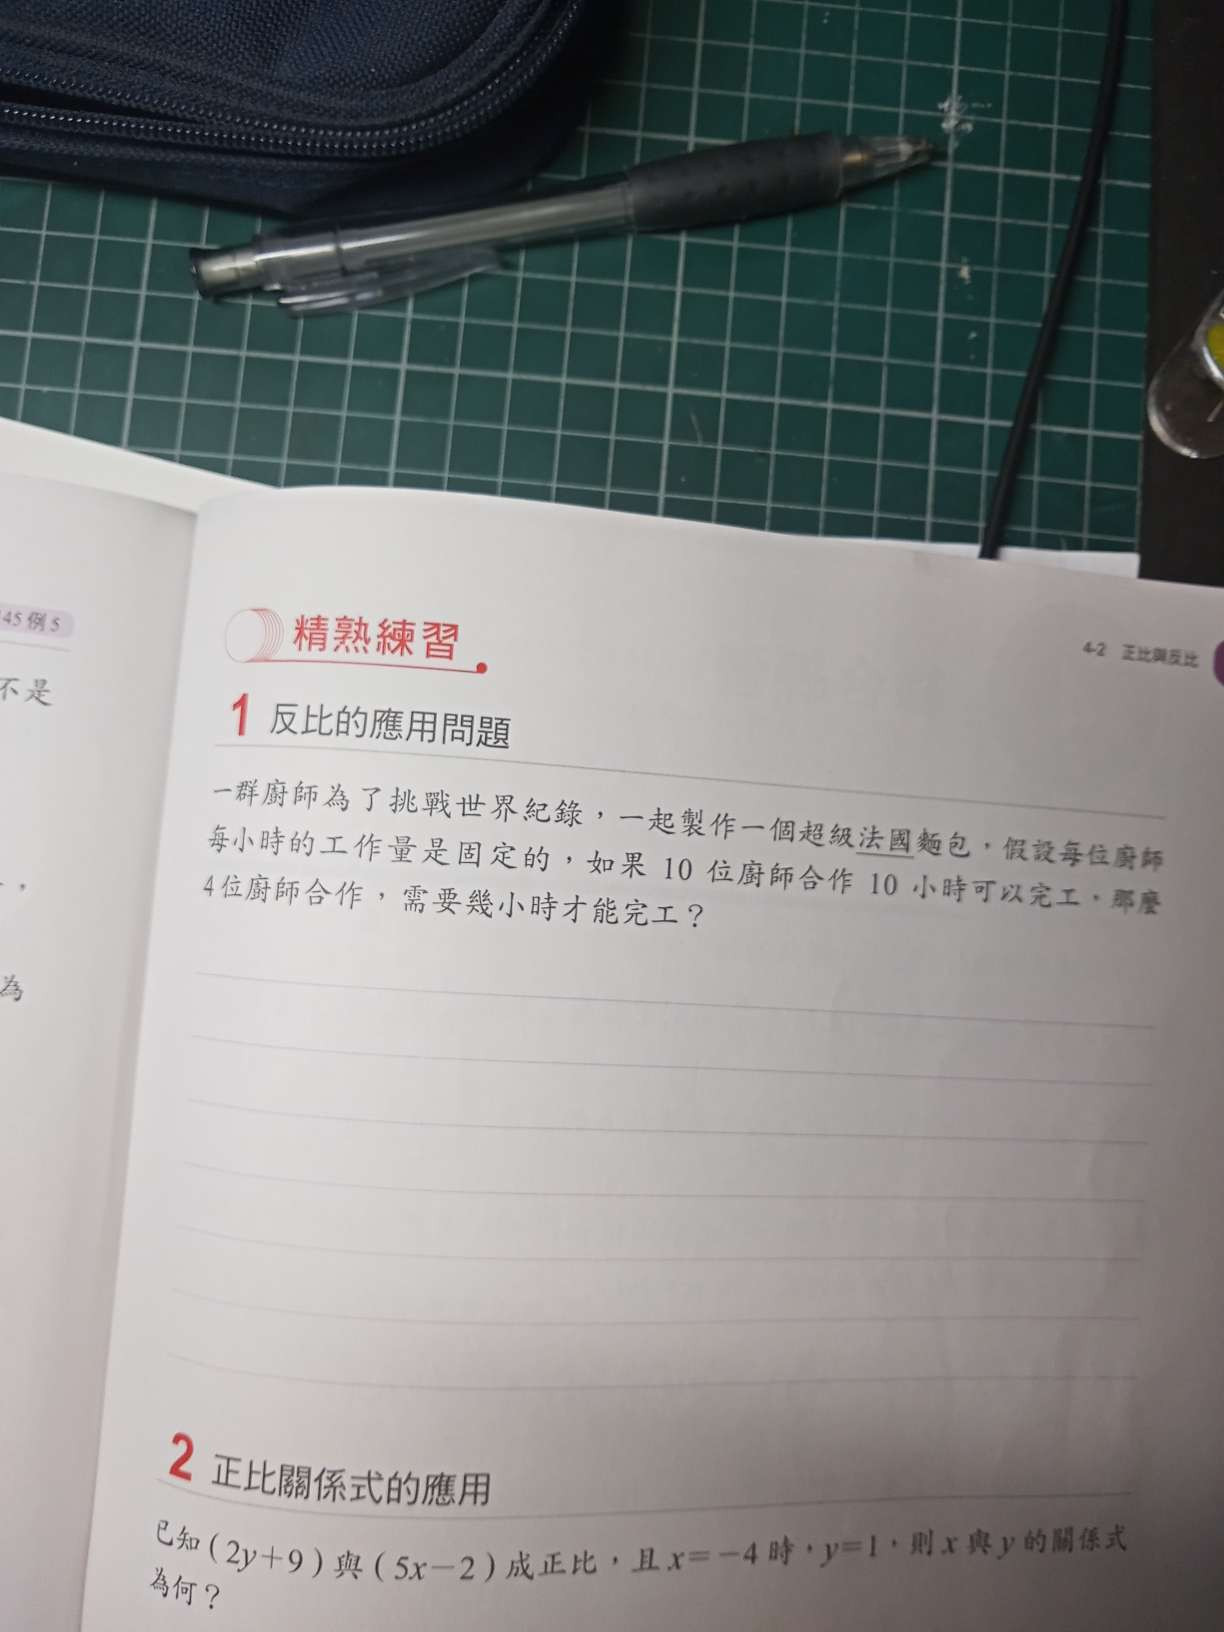 45 例 5
不是
，
為
精熟練習
4-2 正比與反比
1 反比的應用問題
一群廚師為了挑戰世界紀錄，一起製作一個超級法國麵包，假設每位廚師
每小時的工作量是固定的，如果 10 位廚師合作 10 小時可以完工，那麼
4位廚師合作，需要幾小時才能完工？
2 正比關係式的應用
已知(2y+9)與(5x－2)成正比，且x=－4時，y=1，則x與y的關係式
為何？